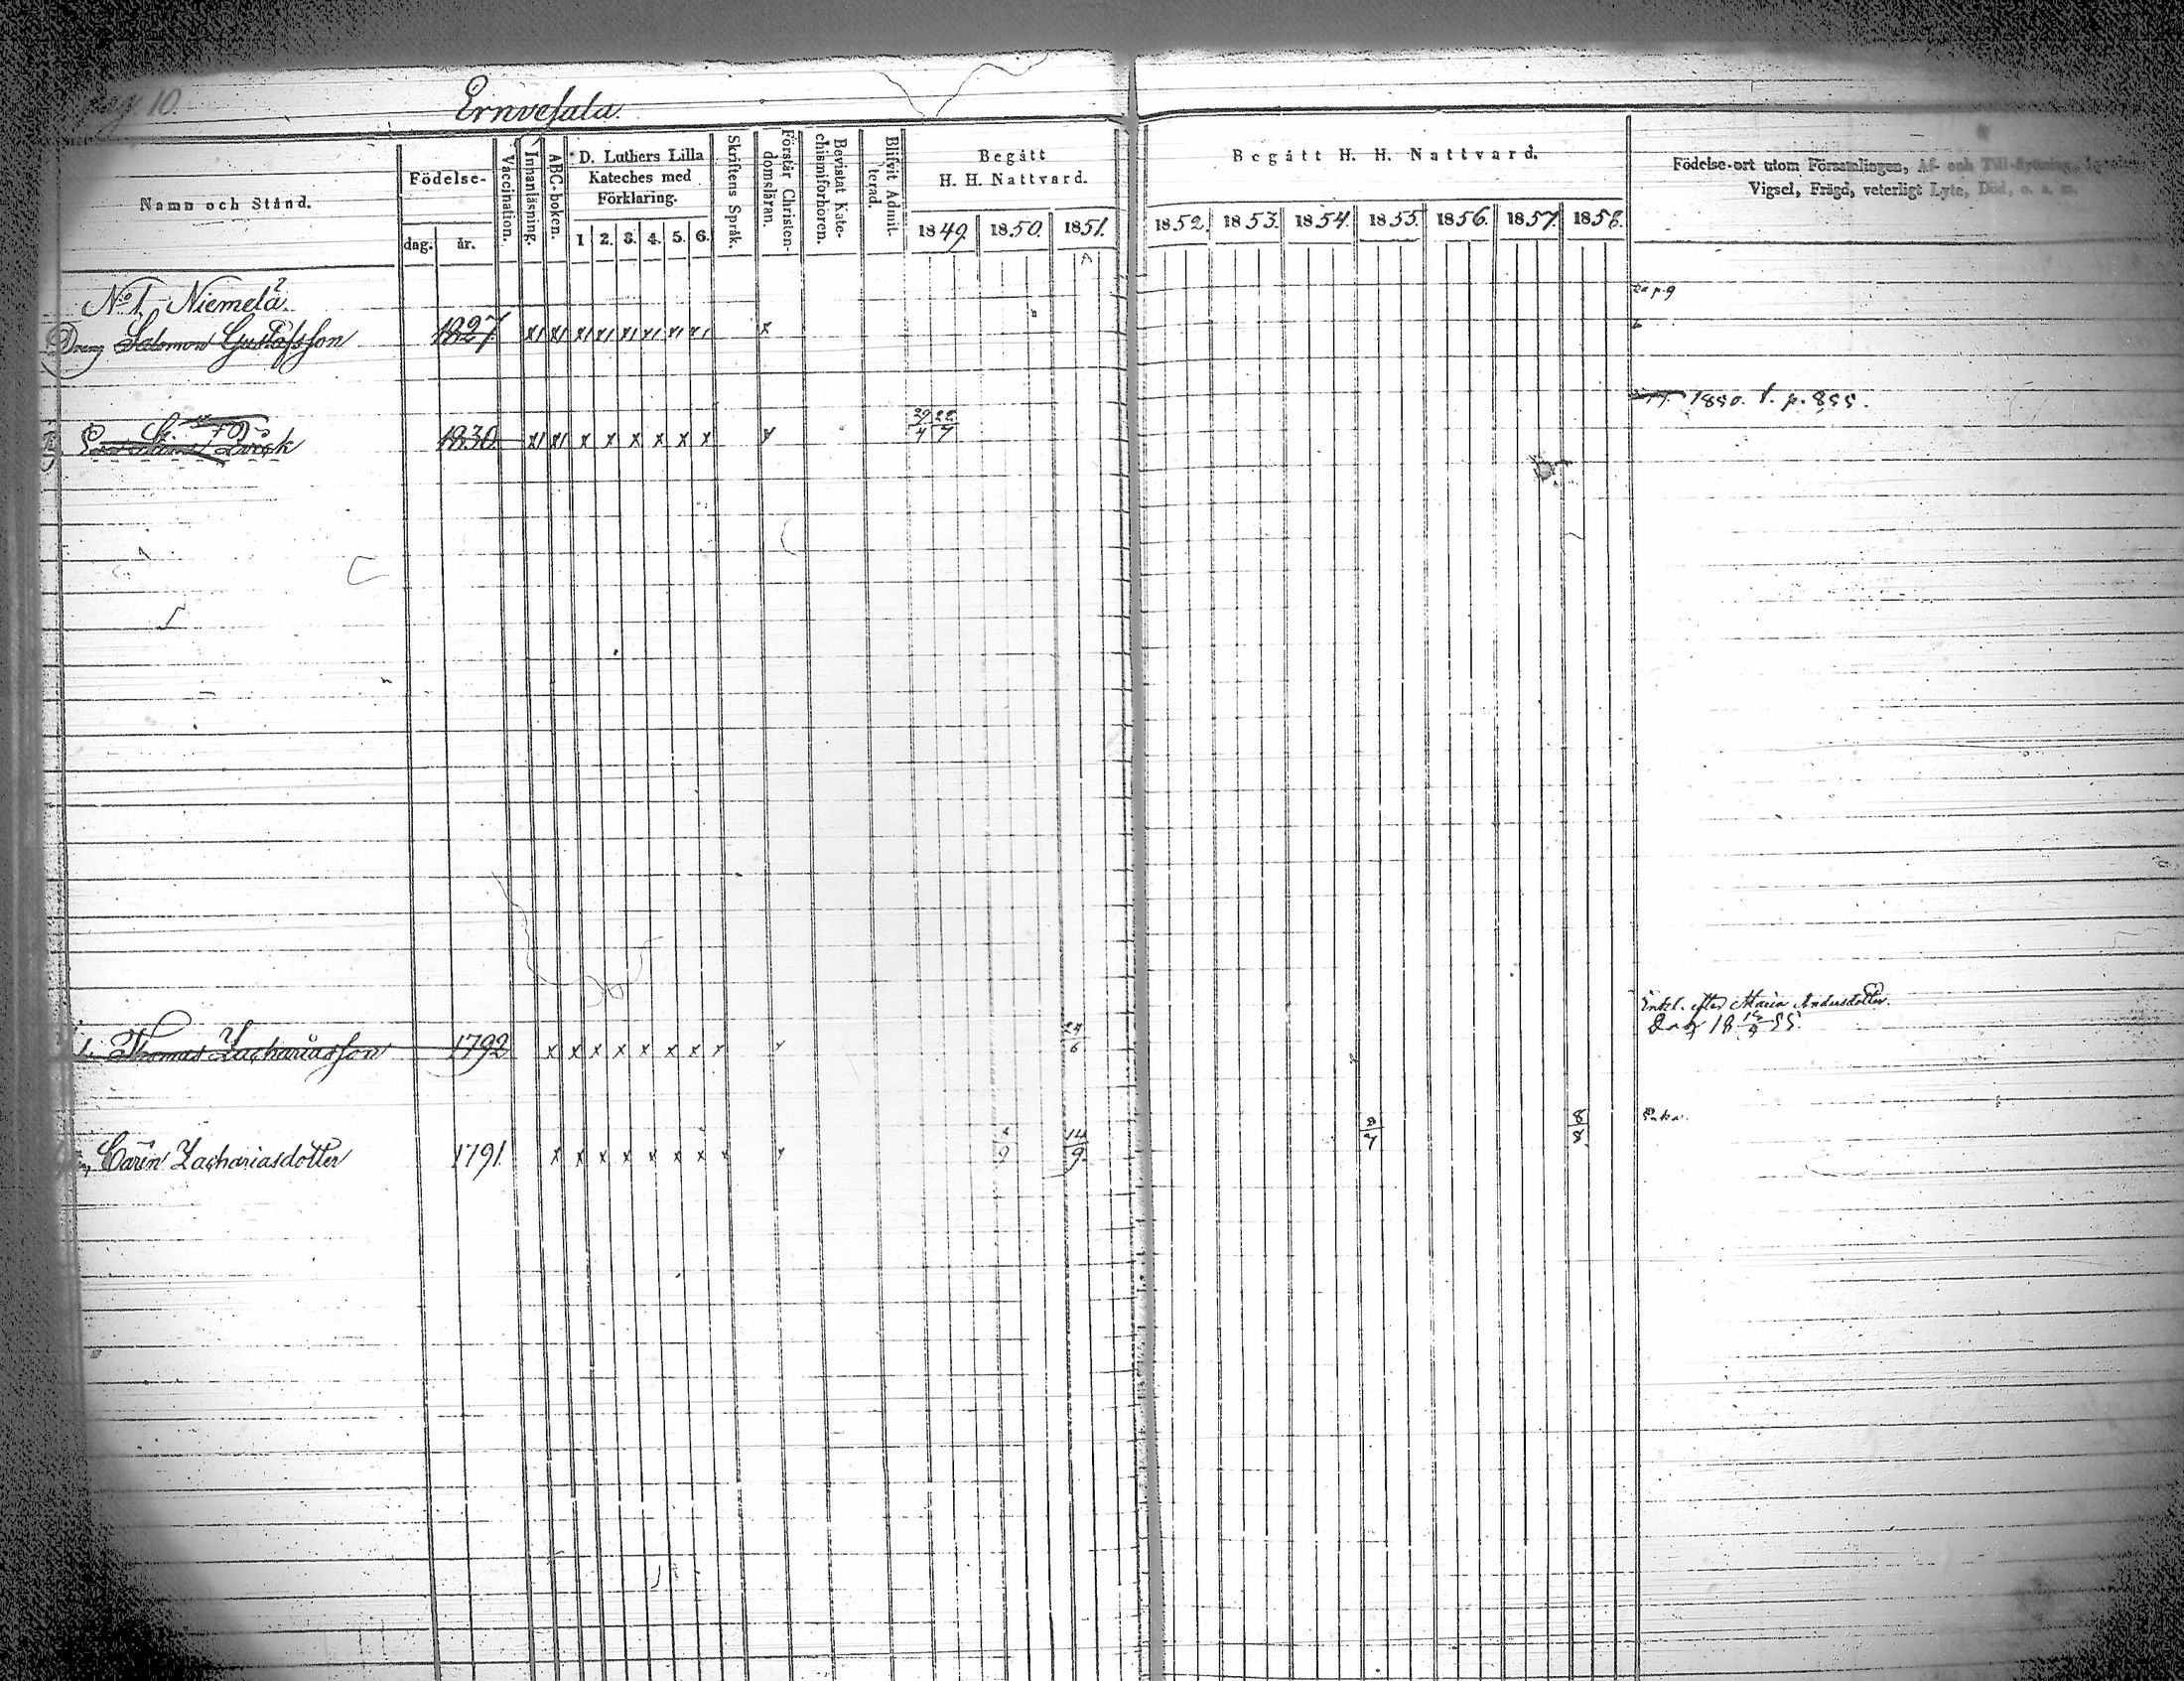 pag 10.
Ernvesala.
Namn och Stånd.
Födelse-
dag.
år.
Vaccination.
Innanläsning.
ABC-boken.
D. Luthers Lilla
Kateches med
Förklaring.
1 2. 3. 4. 5. 6.
Skriftens Språk.
Förstår Christen-
domsläran.
Bevistat Kate-
chismiförhören.
Blifvit Admit-
terad.
Begått
H. H. Nattvard.
1849. 1850. 1851.
Begått H. H. Nattvard.
1852. 1853. 1854. 1855. 1856. 1857. 1858.
Födelse-ort utom Församlingen, Af- och Till-flyttning,
Vigsel, Frägd, veterligt Lyte, Död, o. s. m.
No 1. Niemelä
p. 9
Dreng Salomon Gustafsson 1827. x x x x x x x x x
1850. p. 855.
Qvick 1830. x x x x x x x x y 29/4
Enkl. efter Maria Andersdotter.
Thomas Zachariasson 1792 x x x x x x x x y 24/6
Enka.
Carin Zachariasdotter 1791. x x x x x x x x y 14/9. 8/7 8/8